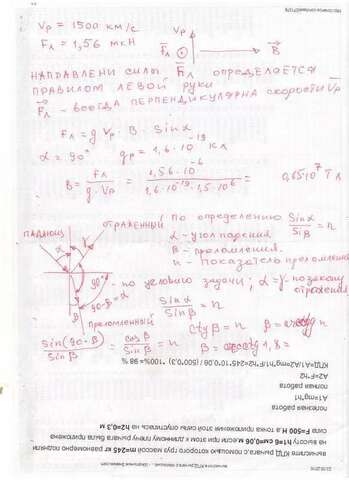 Vр = 1500 км/с
Fл = 1,56 мкН
Vр
Fл
B
НАПРАВЛЕНИ СИЛЫ Fл ОПРЕДЕЛЯЕТСЯ
ПРАВИЛОМ ЛЕВОЙ РУКИ
Fл - ВСЕГДА ПЕРПЕНДИКУЛЯРНА СКОРОСТИ Vр
Fл = q Vр · B · Sinα
α = 90° qр = 1,6·10⁻¹⁹ кл
B = Fл / q·Vр = 1,56·10⁻⁶ / 1,6·10⁻¹⁹·1,5·10⁶ =
ПАДАЮЩ
ОТРАЖЕННЫЙ
по определению Sinα / Sinβ = n
α - угол падения
β - преломления.
n - показатель преломлен
90° - по условию задачи; α = γ - по закону отражения
90-β = α
Sinα / Sinβ = n
Преломленный
Sin(90-β) / Sinβ = cosβ / Sinβ = n
ctgβ = n
β = arcctg n
β = arcctg 1,8 =
КПД=А1/А2=mg*h1/F*h2=245*10*0,06 / (500*0,3) *100%= 98 %
А2=F*h2
полная работа
А1=mg*h1
полезная работа
сила F=500 Н а точка приложения этой силы опустилась на h2=0,3 м
на высоту h1=6 см=0,06 м если при этом к длинному плечу рычага была приложена
вычислите КПД рычага, с помощью которого груз массой m=245 кг равномерно подняли